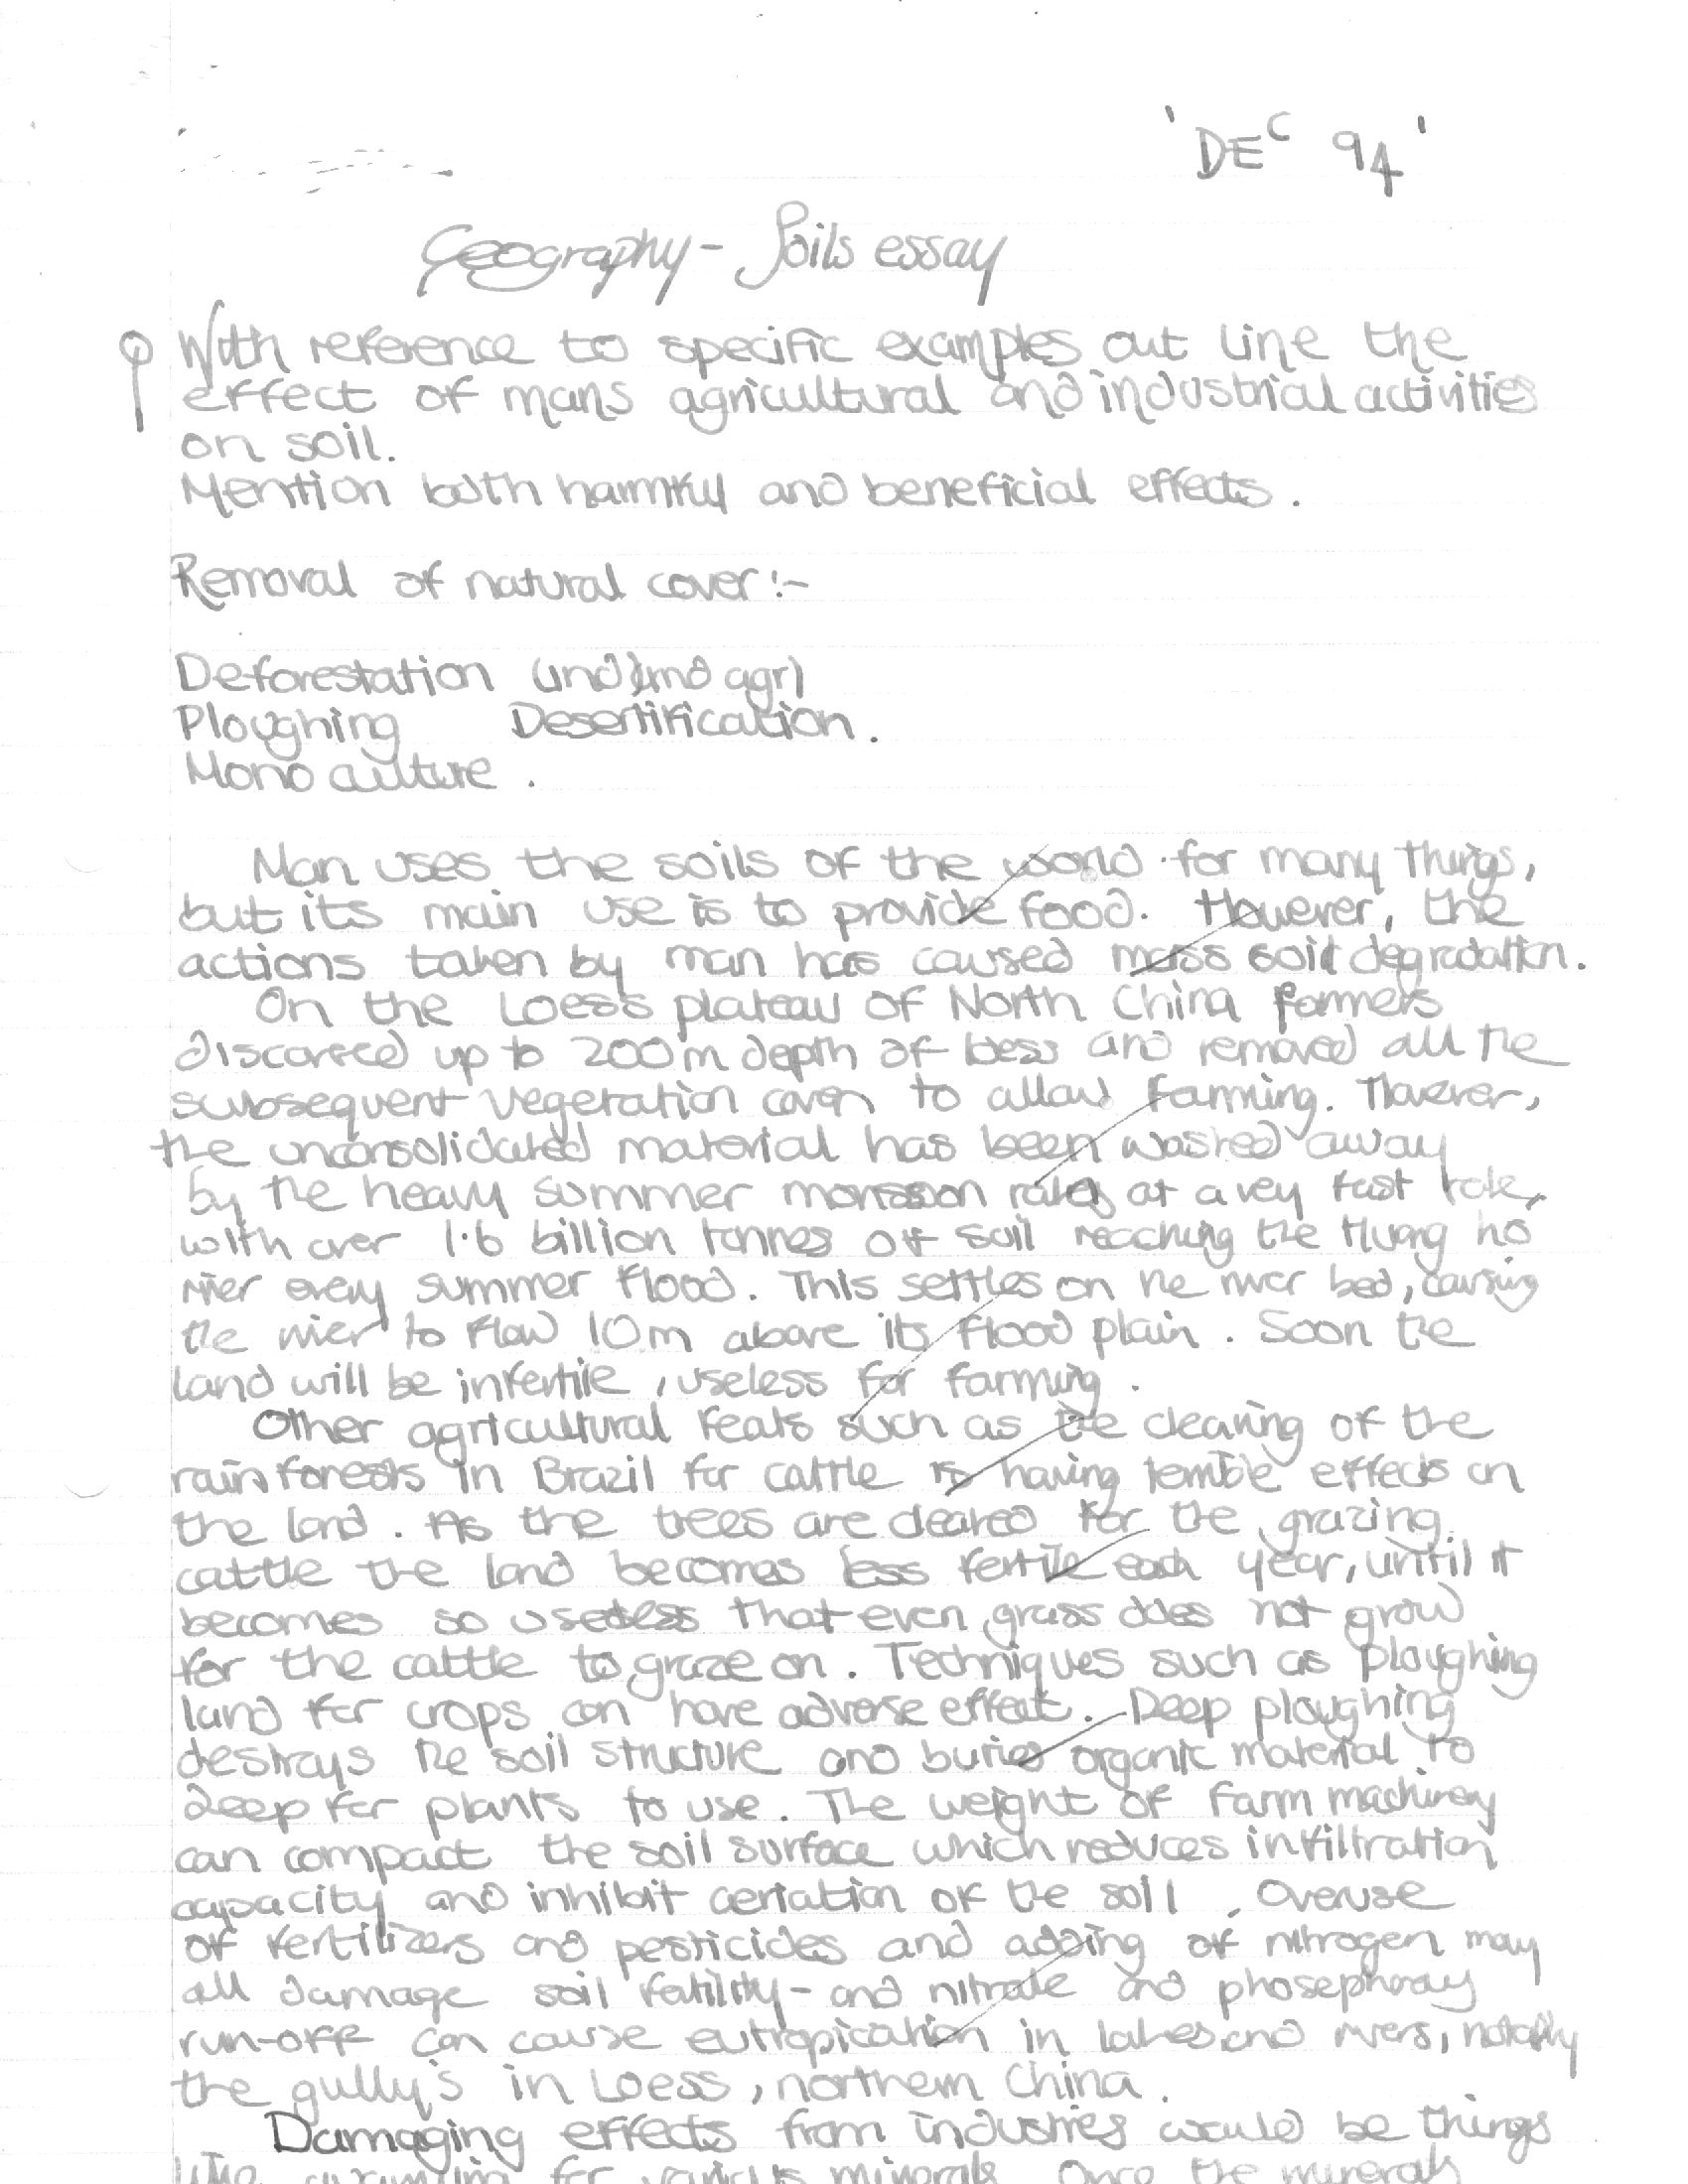 'DEC 94'
Geography - Soils essay
Q With reference to specific examples out line the
effect of mans agricultural and industrial activities
on soil.
Mention both harmful and beneficial effects.
Removal of natural cover:-
Deforestation (ind) (and agr)
Ploughing Desertification.
Mono culture.
Man uses the soils of the world for many things,
but its main use is to provide food. However, the
actions taken by man has caused mass soil degradation.
On the Loess plateau of North China farmers
discarced up to 200m depth of loess and removed all the
subsequent vegetation cover to allow farming. However,
the unconsolidated material has been washed away
by the heavy summer monsoon rains at a vey fast rate,
with over 1.6 billion tonnes of soil reaching the Huang ho
river every summer flood. This settles on the river bed, causing
the river to flow 10m above its flood plain. Soon the
land will be infertile, useless for farming.
Other agricultural feats such as the clearing of the
rainforests in Brazil for cattle is having terrible effects on
the land. As the trees are cleared for the grazing
cattle the land becomes less fertile each year, until it
becomes so useless that even grass does not grow
for the cattle to graze on. Techniques such as ploughing
land for crops can have adverse effect. Deep ploughing
destroys the soil structure and buries organic material to
deep for plants to use. The weight of farm machinery
can compact the soil surface which reduces infiltration
capacity and inhibit aeriation of the soil. Overuse
of fertilizers and pesticides and adding of nitrogen may
all damage soil fertility - and nitrate and
run-off can cause eutropication in lakes and rivers, notably
the gully's in Loess, northern China.
Damaging effects from industries would be things
like for various minerals. Once the minerals